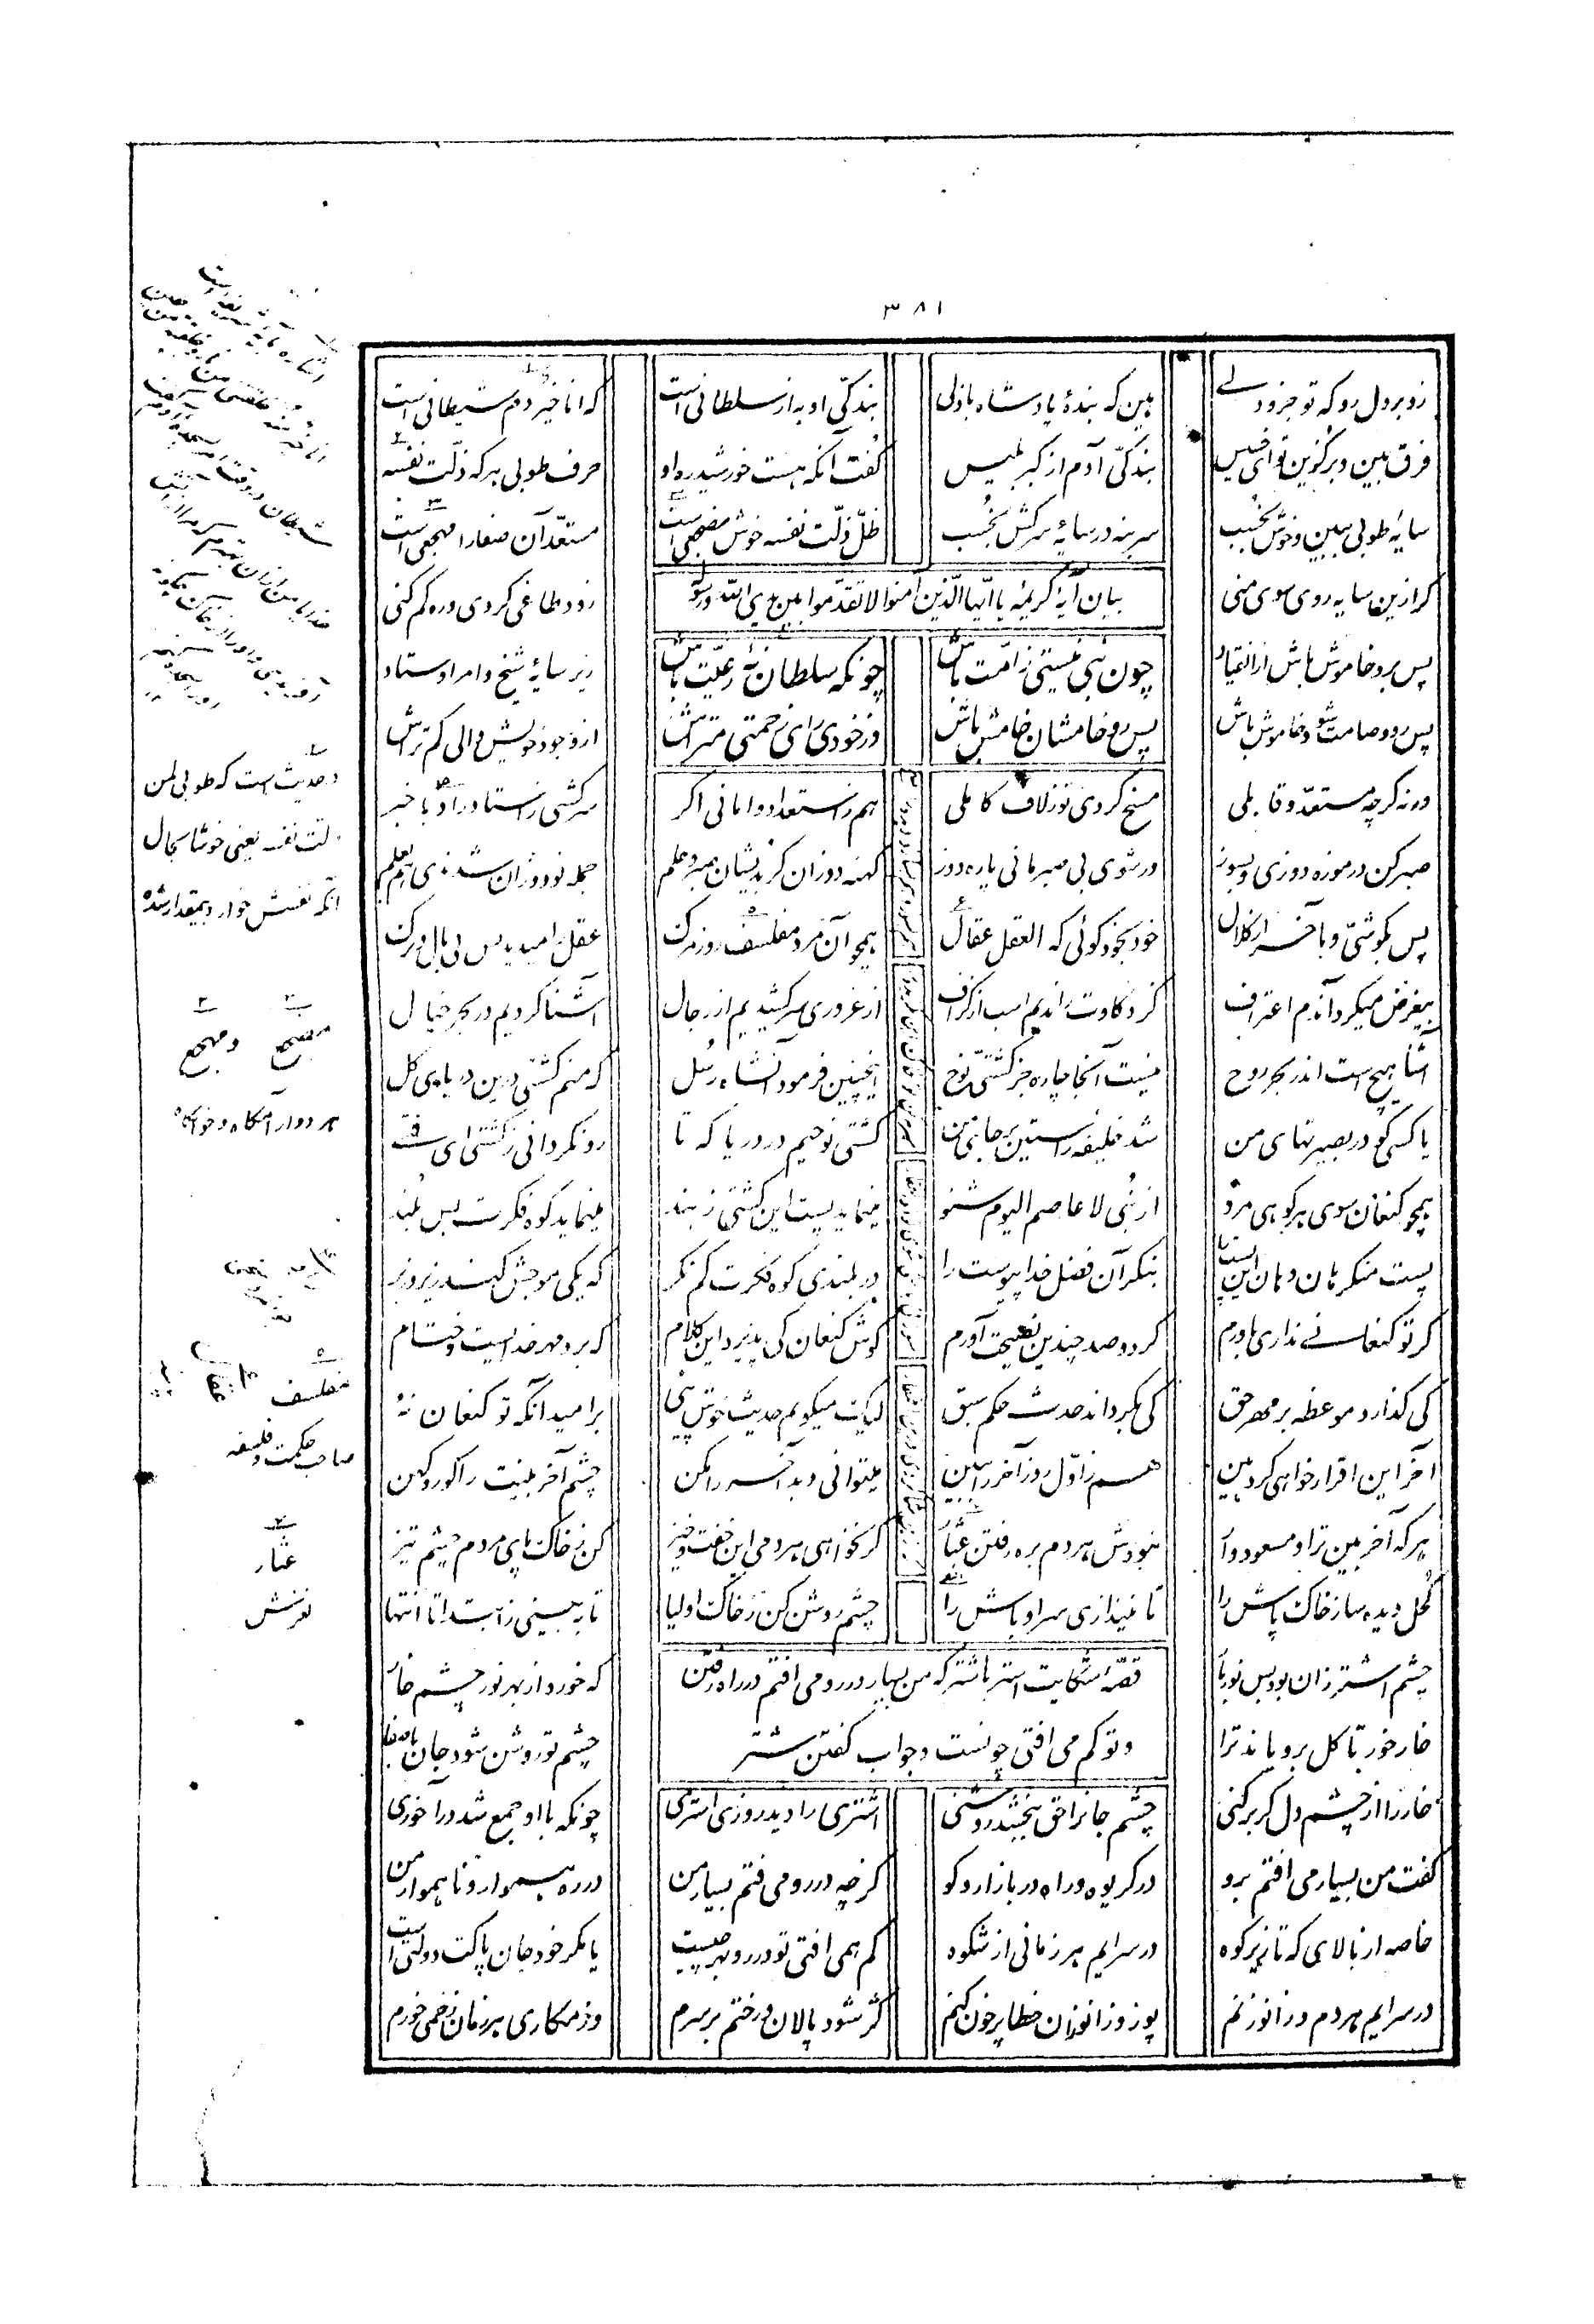 ۳۸۱
رو بر دل رو که تو جزو دلی هین که بندهٔ پادشاه باذلی بندگی او به از سلطانی است که انا خیر دم شیطانی است
فرق بین و برگزین تو ای خسیس بندگی آدم از کبر بلیس گفت آنکه هست خورشید ره او حرف طوبی هر که ذلت نفسه
سایهٔ طوبی ببین و خوش بخسب سر بنه در سایه سرکش بخسب ظل ذلت نفسه خوش مضجعی است مستعد آن صفا را مهجعی است
گر ازین سایه روی سوی منی زود طاغی گردی و ره گم کنی
بیان آیهٔ کریمه یا ایها الذین آمنوا لا تقدموا بین یدی الله و رسوله
چون نبی نیستی ز امت باش چونکه سلطان نهٔ رعیت باش
پس رو خامشان خامش باش وز خودی رای زحمتی متراش
پس برو خاموش باش از انقیاد زیر سایهٔ شیخ و امر اوستاد
پس رو و صامت شو و خاموش باش از وجود خویش والی کم تراش
ورنه گرچه مستعد و قابلی مسخ گردی تو ز لاف کاملی هم ز استعداد وا مانی اگر سرکشی ز استاد راد با خبر
صبر کن در موزه دوزی و بسوز ور شوی بی صبر مانی پاره دوز کهنه دوزان گر بدیشان صبر و علم جمله نو دوزان شدندی هم بعلم
پس بکوشی و بآخر از کلال خود بخود گوئی که العقل عقال همچو آن مرد مفلسف روز مرگ عقل را میدید بس بی بال و برگ
بیغرض میکرد آندم اعتراف کز ذکاوت راندیم اسب از گزاف از غروری سر کشیدیم از رجال آشنا کردیم در بحر خیال
آشنا هیچ است اندر بحر روح نیست آنجا چاره جز کشتی نوح اینچنین فرمود آنشاه رسل که منم کشتی درین دریای کل
یا کسی کو در بصیرتهای من شد خلیفه راستین بر جای من کشتی نوحیم در دریا که تا رو نگردانی ز کشتی ای فتی
همچو کنعان سوی هر کوهی مرو از نبی لا عاصم الیوم شنو مینماید پست این کشتی ز بند مینماید کوه فکرت بس بلند
پست منگر هان و هان این پست را بنگر آن فضل خدا پیوست را در بلندی کوه فکرت کم نگر که یکی موجش کند زیر و زبر
گر تو کنعانی نداری باورم گر دو صد چندین نصیحت آورم گوش کنعان کی پذیرد این کلام که برو مهر خدایست و ختام
کی گذارد موعظه بر مهر حق کی بگرداند حدث حکم سبق لیک میگویم حدیث خوش پئی بر امید آنکه تو کنعان نهٔ
آخر این اقرار خواهی کرد هین هم ز اول روز آخر را ببین میتوانی دید آخر را مکن چشم آخر بینت را کور و کهن
هر که آخر بین ترا و مسعود وار نبودش هر دم بره رفتن عثار گر نخواهی هر دمی این خفت و خیز کن ز خاک پای مردم چشم تیز
کحل دیده ساز خاک پاش را تا نیندازی سر اوباش را چشم روشن کن ز خاک اولیا تا ببینی ز ابتدا تا انتها
قصهٔ شکایت استر با شتر که من بسیار در رو می افتم در راه رفتن
و تو کم می افتی چونست و جواب گفتن شتر
چشم اشتر زان بود بس نوربار که خورد از بهر نور چشم خار
خار خور تا گل برویاند ترا چشم تو روشن شود جان با صفا
خار را از چشم دل گر بر کنی چشم جانرا حق ببخشد روشنی اشتری را دید روزی استری چونکه با او جمع شد در آخوری
گفت من بسیار می افتم برو در گریوه و راه و در بازار و کو گرچه در رو می فتم بسیار من در ره هموار و ناهموار من
خاصه از بالای که تا زیر کوه در سر ایم هر زمانی از شکوه کم همی افتی تو در رو بهر چیست یا مگر خود جان پاکت دولتی است
در سر ایم هر دم و زانو زنم پوز و زانو زان خطا پر خون کنم کژ شود پالان و رختم بر سرم وز مکاری هر زمان زخمی خورم
در حدیث است که طوبی لمن
ذلت نفسه یعنی خوشا بحال
آنکه نفسش خوار و بیمقدار شده
مضجع و مهجع
هر دو آرامگاه و خوابگاه
مفلسف
صاحب حکمت و فلسفه
عثار
لغزش